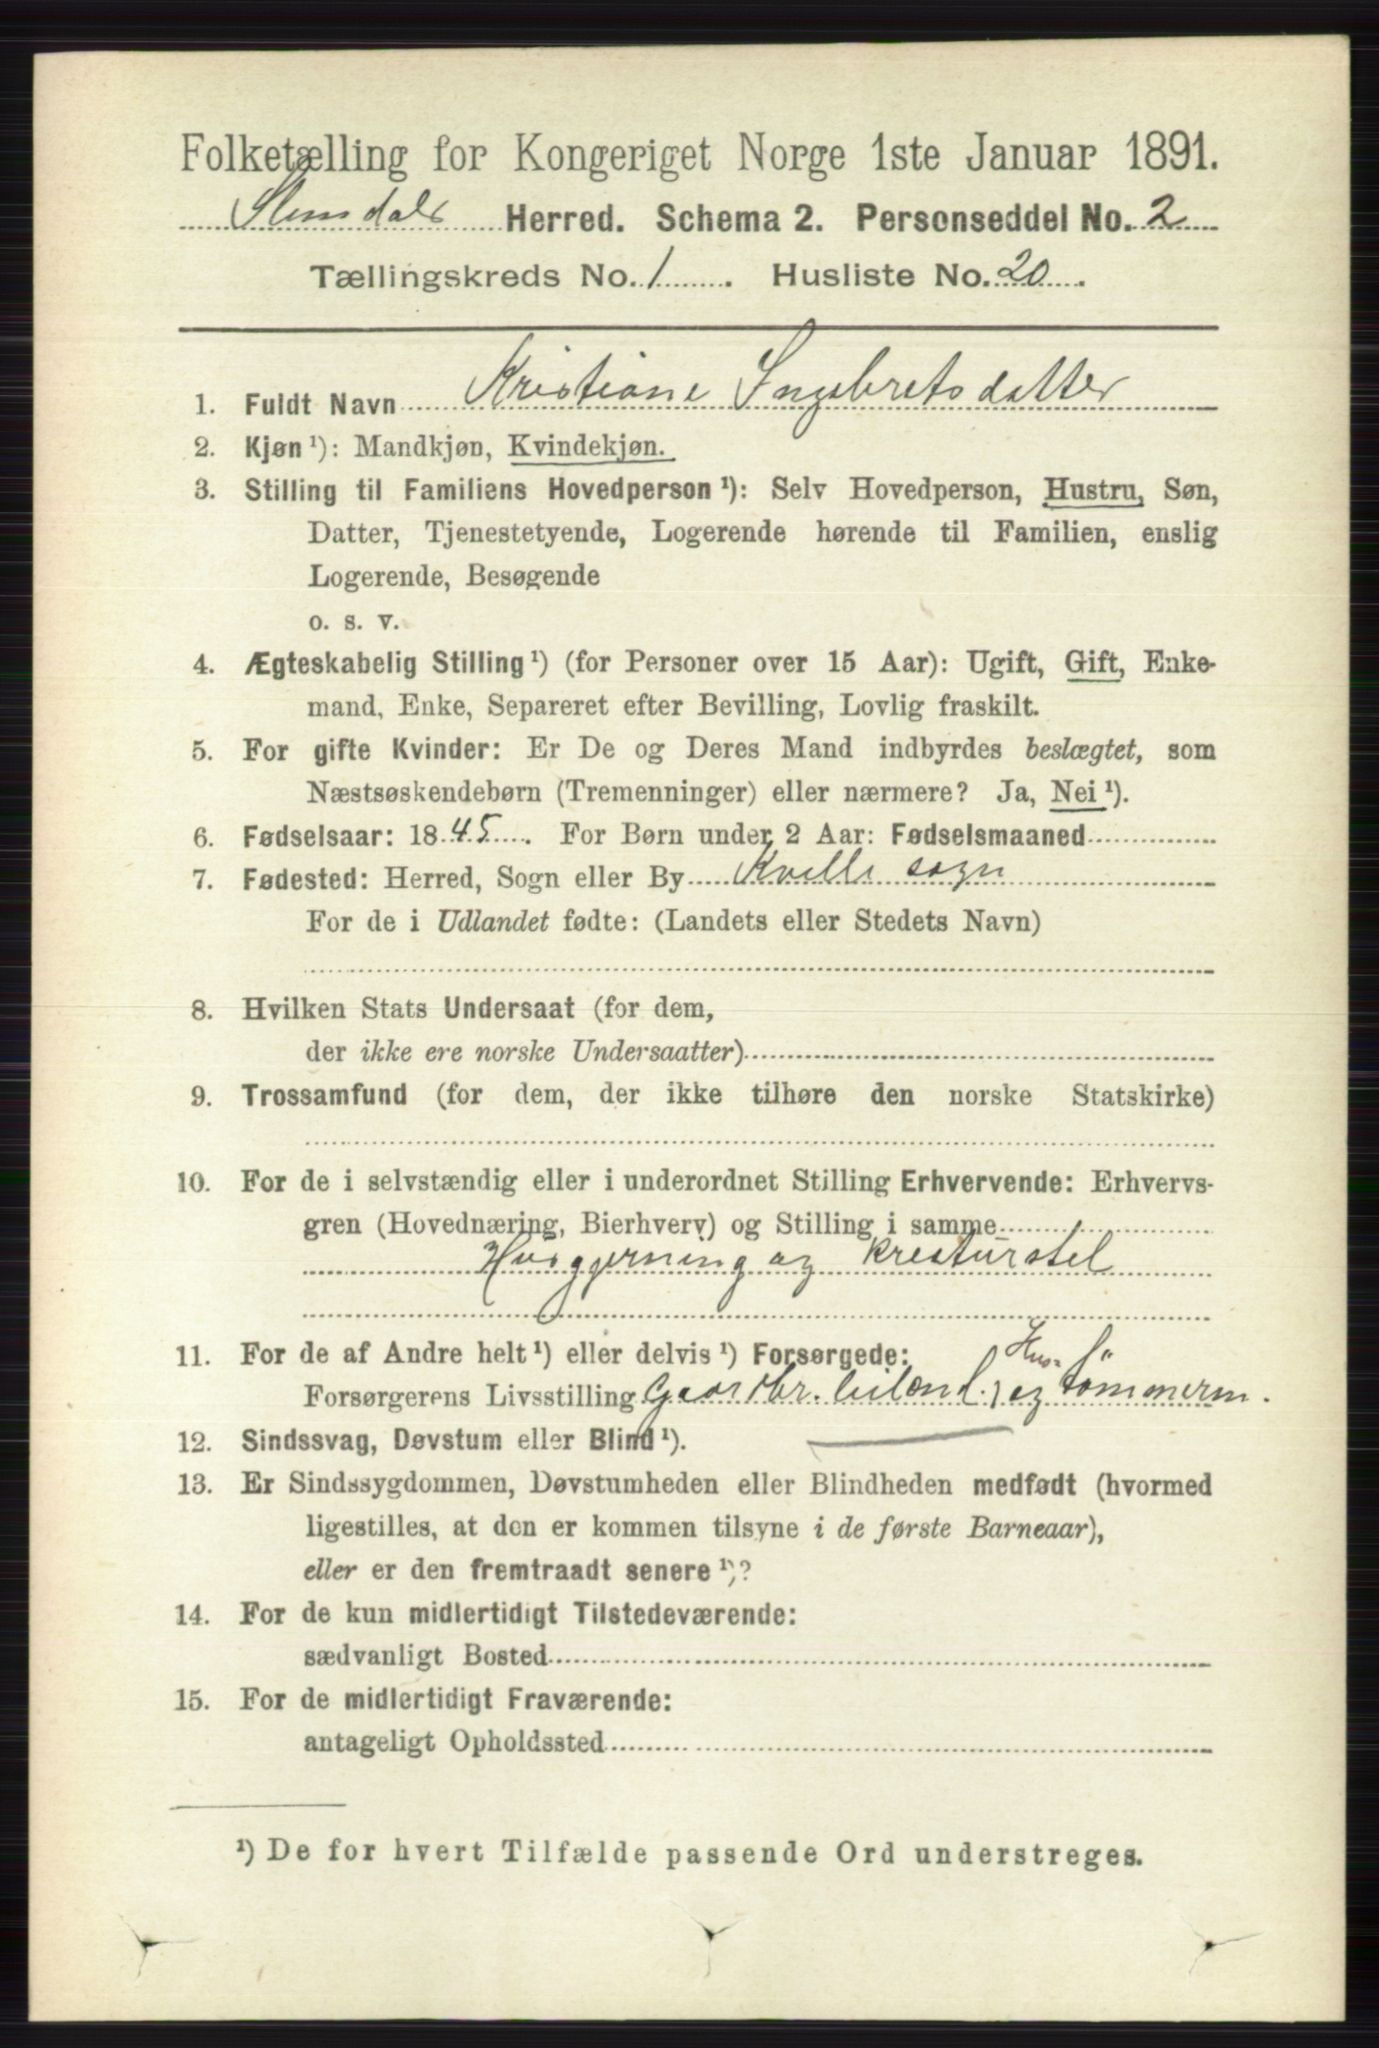 Folketælling for Kongeriget Norge 1ste Januar 1891.
Slemdals Herred. Schema 2. Personseddel No. 2
Tællingskreds No. 1. Husliste No. 20.
1. Fuldt Navn Kristiane Ingebretsdatter
2. Kjøn ¹): Mandkjøn, Kvindekjøn.
3. Stilling til Familiens Hovedperson ¹): Selv Hovedperson, Hustru, Søn,
Datter, Tjenestetyende, Logerende hørende til Familien, enslig
Logerende, Besøgende
o. s. v.
4. Ægteskabelig Stilling ¹) (for Personer over 15 Aar): Ugift, Gift, Enke-
mand, Enke, Separeret efter Bevilling, Lovlig fraskilt.
5. For gifte Kvinder: Er De og Deres Mand indbyrdes beslægtet, som
Næstsøskendebørn (Tremenninger) eller nærmere? Ja, Nei ¹).
6. Fødselsaar: 1845. For Børn under 2 Aar: Fødselsmaaned
7. Fødested: Herred, Sogn eller By Kvelle sogn
For de i Udlandet fødte: (Landets eller Stedets Navn)
8. Hvilken Stats Undersaat (for dem,
der ikke ere norske Undersaatter)
9. Trossamfund (for dem, der ikke tilhøre den norske Statskirke)
10. For de i selvstændig eller i underordnet Stilling Erhvervende: Erhvervs-
gren (Hovednæring, Bierhverv) og Stilling i samme
Husgjerning og kreaturstel
11. For de af Andre helt ¹) eller delvis ¹) Forsørgede: Hus-
Forsørgerens Livsstilling Gaardbr. og tømmerm.
12. Sindssvag, Døvstum eller Blind ¹).
13. Er Sindssygdommen, Døvstumheden eller Blindheden medfødt (hvormed
ligestilles, at den er kommen tilsyne i de første Barneaar),
eller er den fremtraadt senere ¹)?
14. For de kun midlertidigt Tilstedeværende:
sædvanligt Bosted
15. For de midlertidigt Fraværende:
antageligt Opholdssted
¹) De for hvert Tilfælde passende Ord understreges.